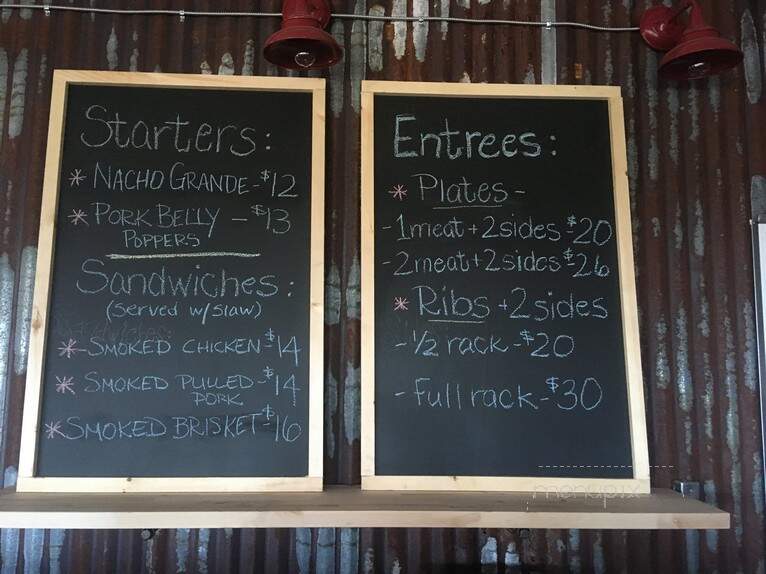 Starters:
* NACHO GRANDE - $12
* PORK BELLY - $13
POPPERS
Sandwiches:
(served w/slaw)
* SMOKED CHICKEN - $14
* SMOKED PULLED - $14
PORK
* SMOKED BRISKET - $16
Entrees:
* Plates -
- 1meat + 2sides $20
- 2meat + 2sides $26
* Ribs + 2 sides
- 1/2 rack - $20
- full rack - $30
menupix